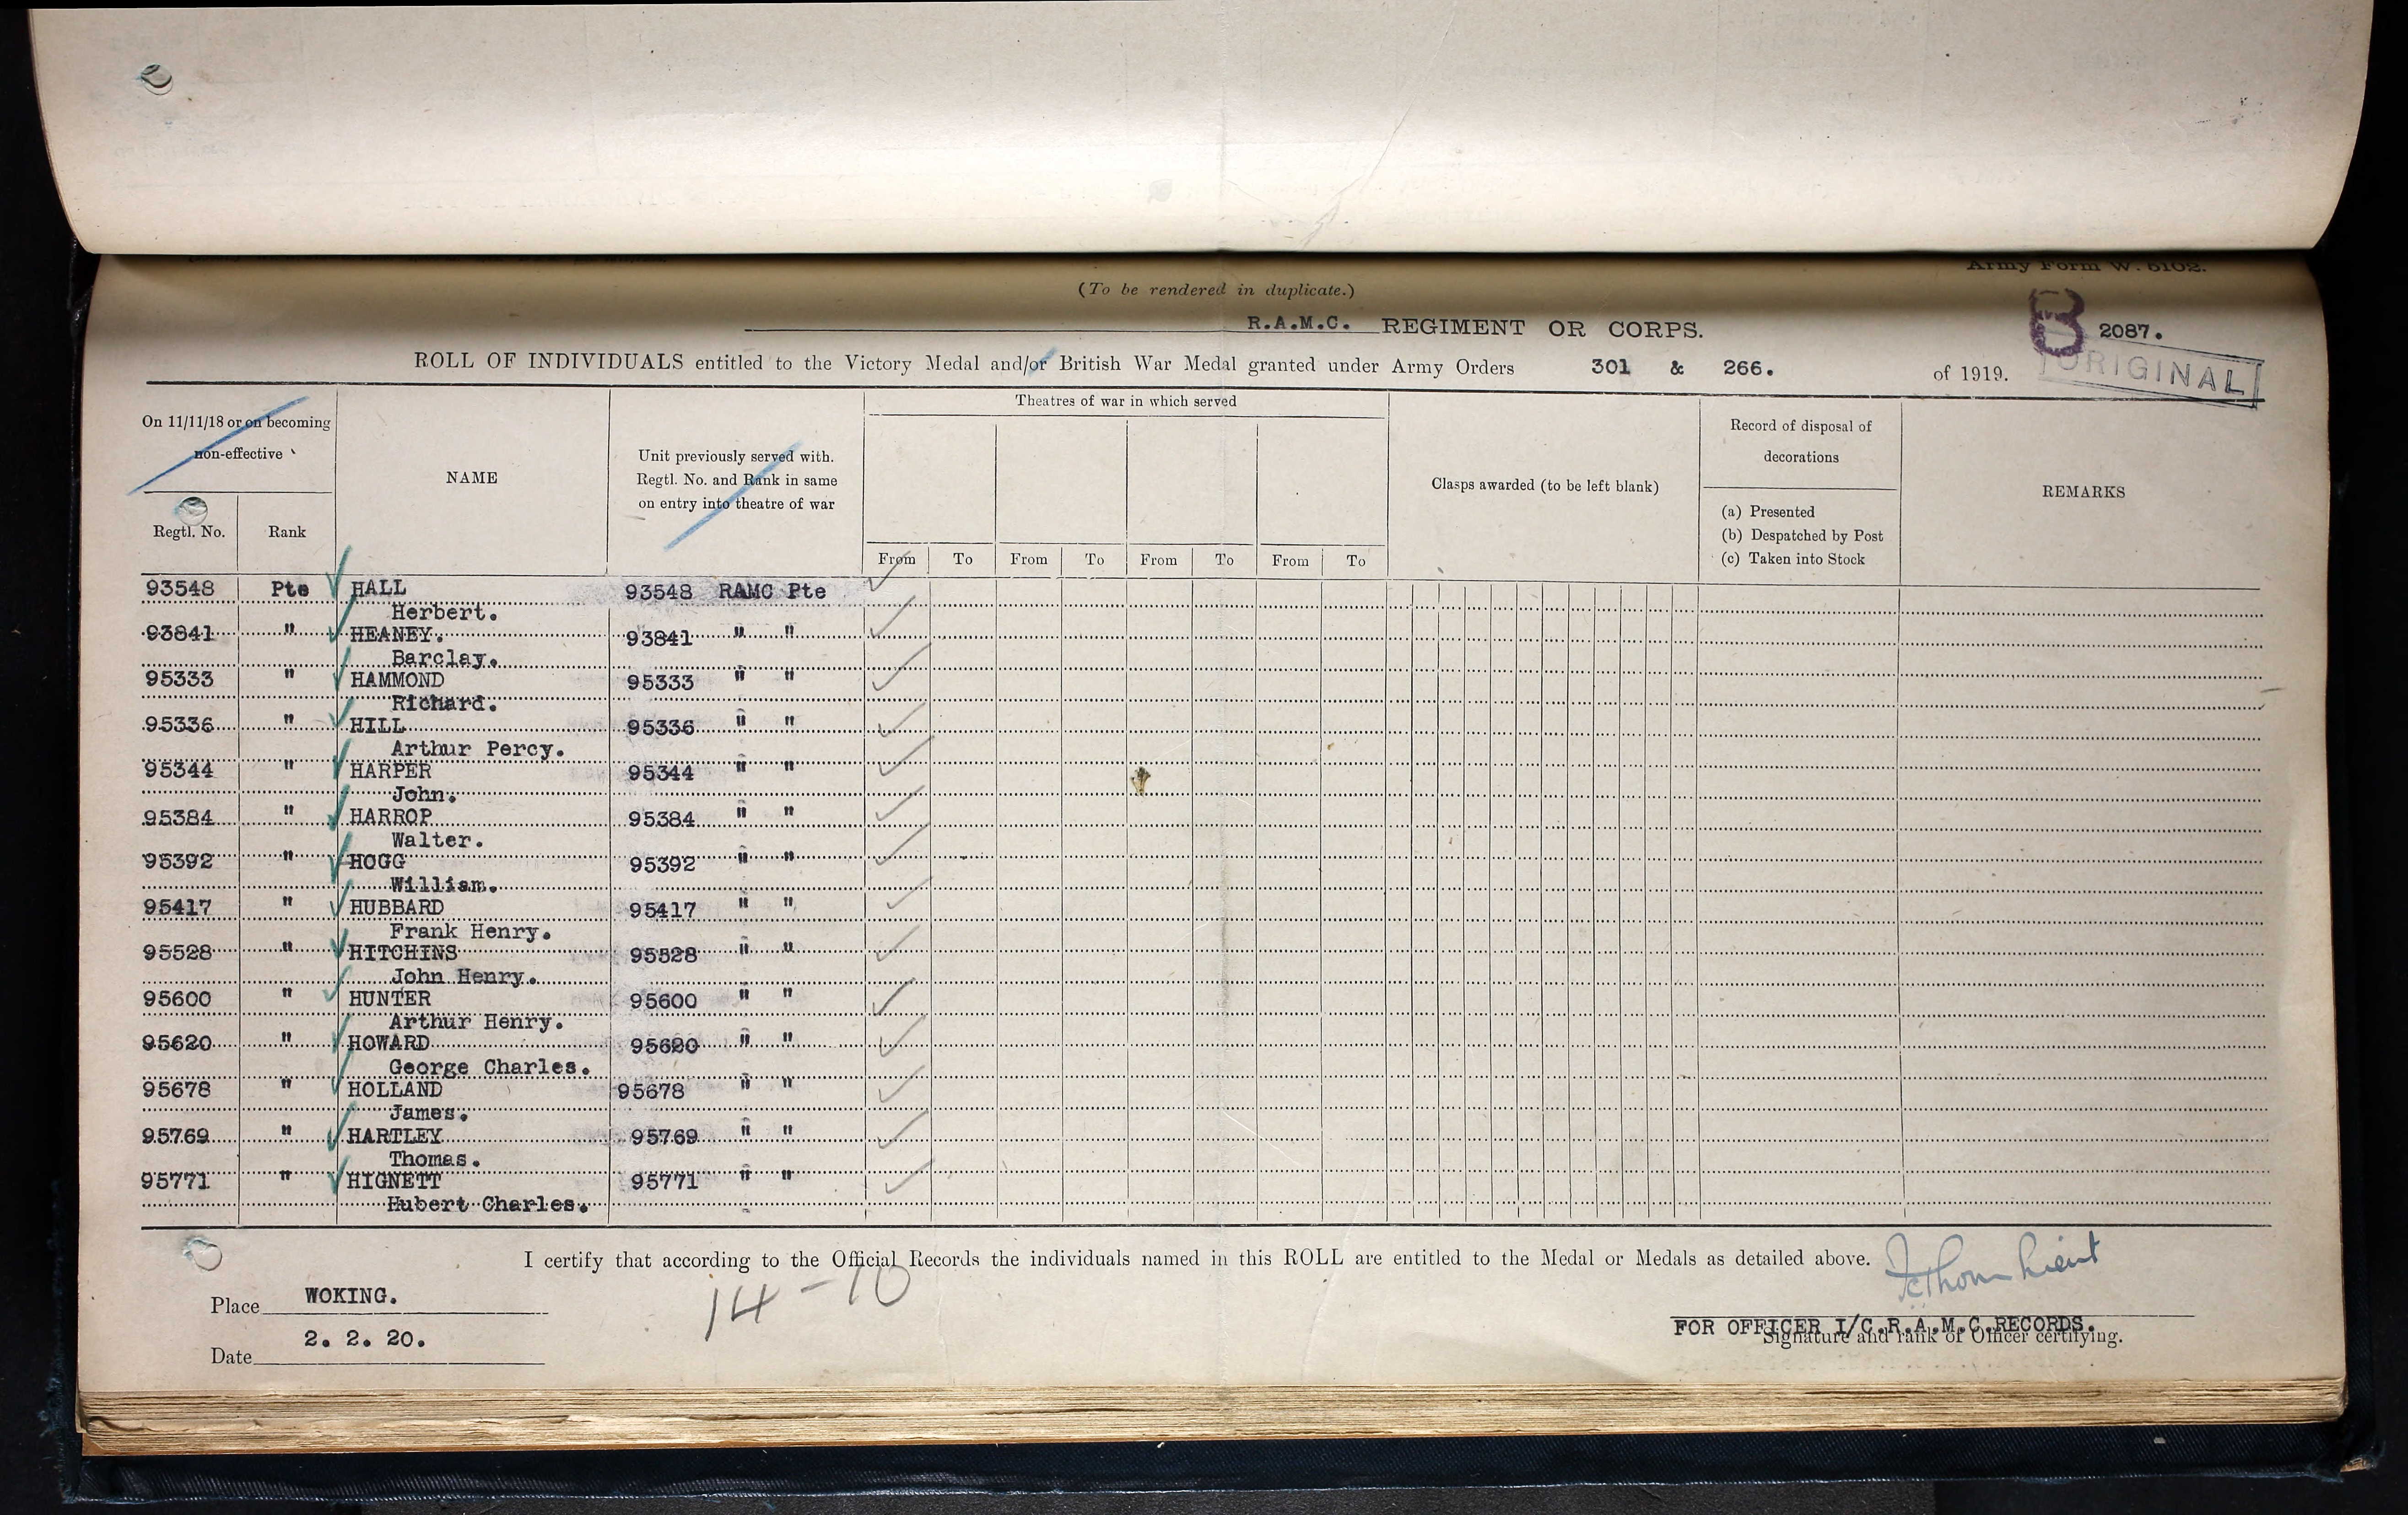 Army Form W. 5102.
(To be rendered in duplicate.)
R.A.M.C. REGIMENT OR CORPS.
B 2087.
ROLL OF INDIVIDUALS entitled to the Victory Medal and/or British War Medal granted under Army Orders 301 & 266. of 1919.
ORIGINAL
On 11/11/18 or on becoming
non-effective
Regtl. No. Rank
NAME
Unit previously served with.
Regtl. No. and Rank in same
on entry into theatre of war
Theatres of war in which served
From To From To From To From To
Clasps awarded (to be left blank)
Record of disposal of
decorations
(a) Presented
(b) Despatched by Post
(c) Taken into Stock
REMARKS
93548 Pte HALL 93548 RAMC Pte
Herbert.
93841 " HEANEY. 93841 " "
Barclay.
95333 " HAMMOND 95333 " "
Richard.
95336 " HILL 95336 " "
Arthur Percy.
95344 " HARPER 95344 " "
John.
95384 " HARROP 95384 " "
Walter.
95392 " HOGG 95392 " "
William.
95417 " HUBBARD 95417 " "
Frank Henry.
95528 " HITCHINS 95528 " "
John Henry.
95600 " HUNTER 95600 " "
Arthur Henry.
95620 " HOWARD 95620 " "
George Charles.
95678 " HOLLAND 95678 " "
James.
95769 " HARTLEY 95769 " "
Thomas.
95771 " HIGNETT 95771 " "
Hubert Charles.
I certify that according to the Official Records the individuals named in this ROLL are entitled to the Medal or Medals as detailed above.
Lieut
14 - 10
Place WOKING.
Date 2. 2. 20.
FOR OFFICER I/C.R.A.M.C.RECORDS.
Signature and rank of Officer certifying.